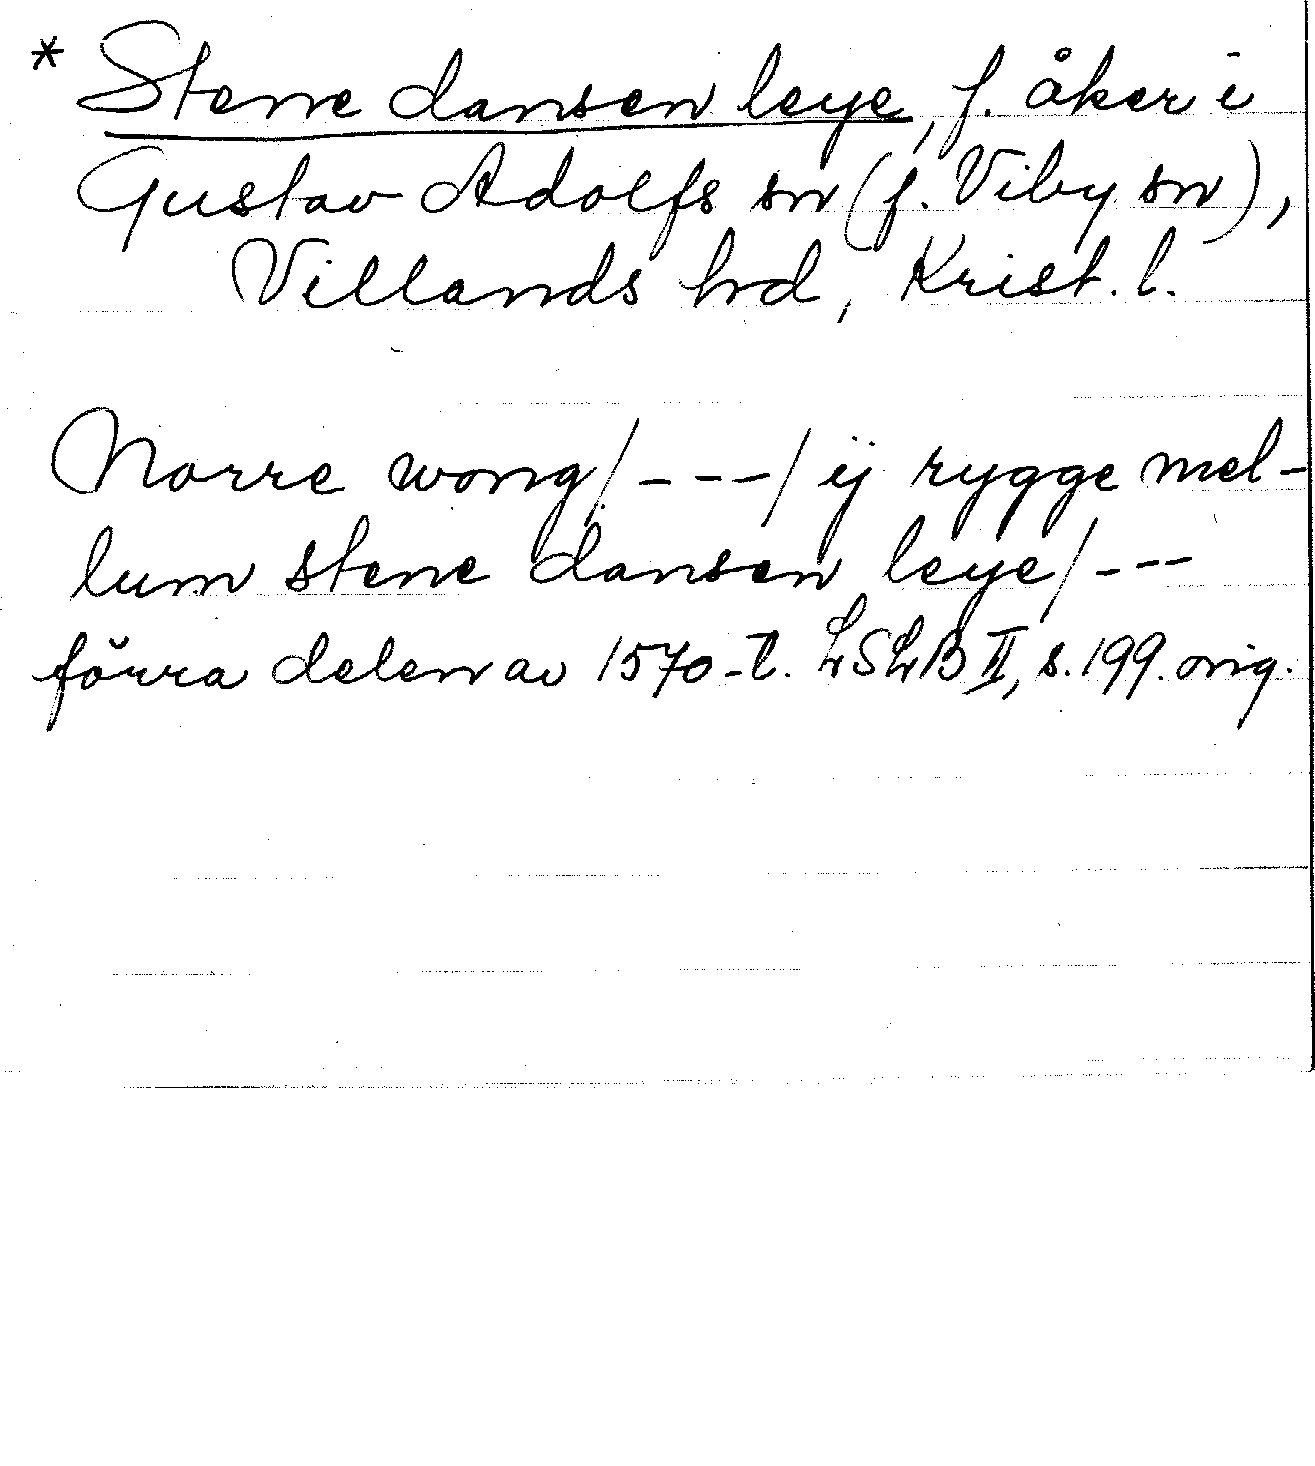 * Stene dansen leye, f. åker i
Gustav Adolfs sn (f. Viby sn),
Villands hd, Krist. l.
Norre wong/---/ ij rygge mel-
lum stene dansen leye/---
förra delen av 1570-t. LSLB II, s. 199. orig.